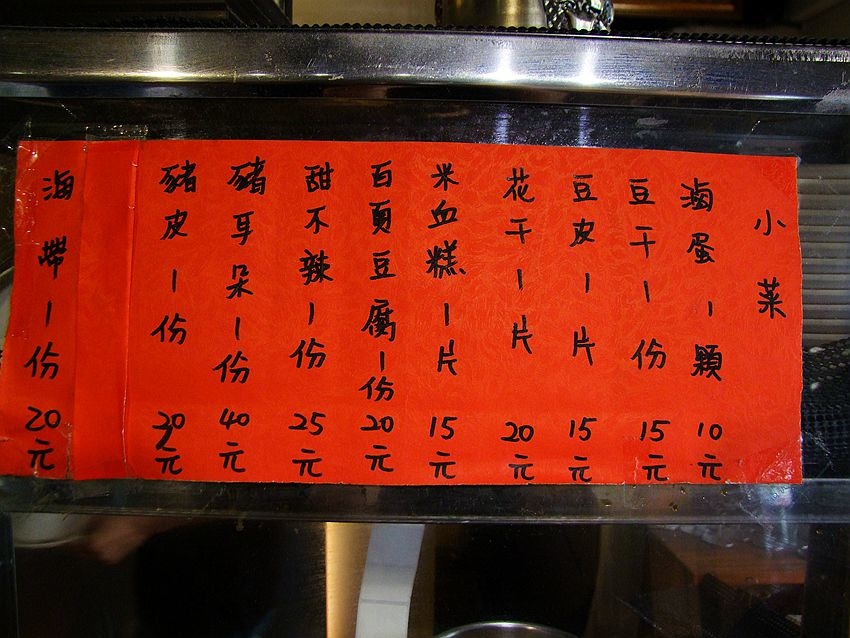 小菜
滷蛋1顆10元
豆干1份15元
豆皮1片15元
花干1片20元
米血糕1片15元
百頁豆腐1份20元
甜不辣1份25元
豬耳朵1份40元
豬皮1份30元
海帶1份20元